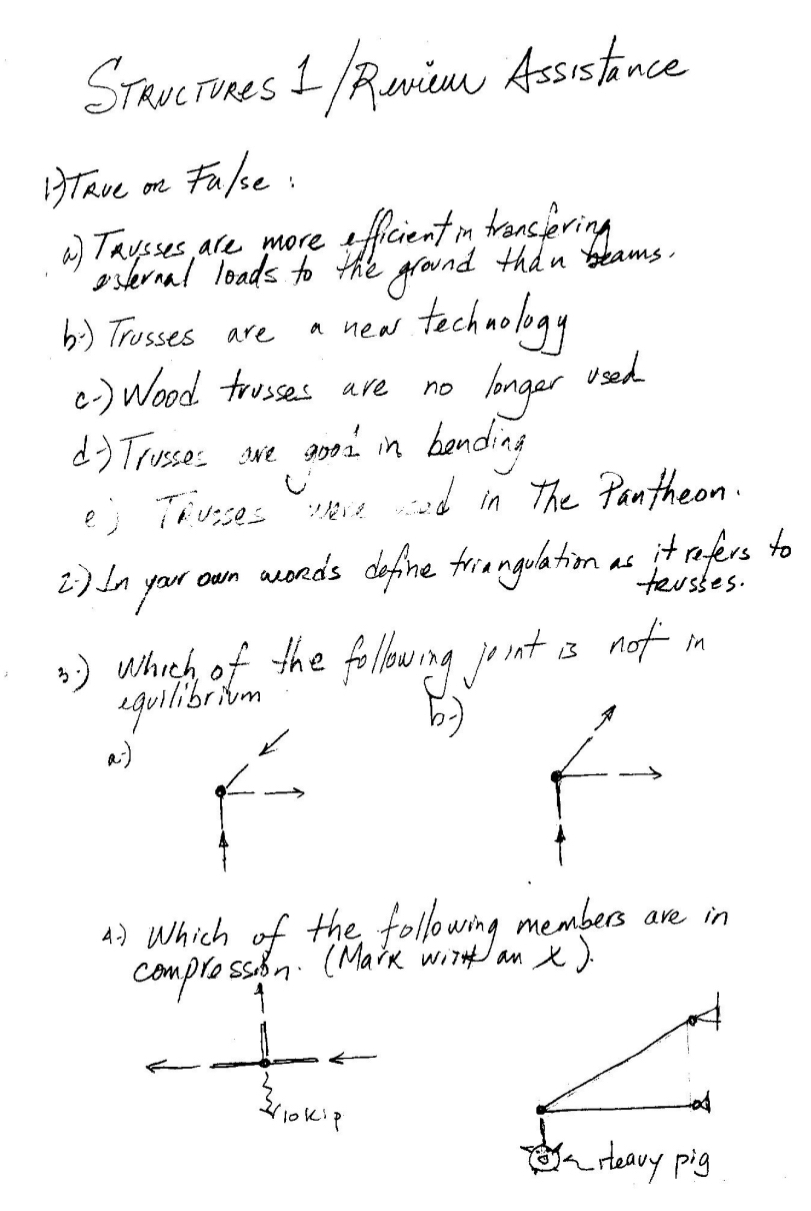 STRUCTURES 1/Review Assistance
1-)TRUE OR False :
a) TRUSSES are more efficient in transfering
external loads to the ground than beams.
b-) Trusses are a new technology
c-) Wood trusses are no longer used
d-) Trusses are good in bending
e-) TRUSSES were used in The Pantheon.
2-) In your own words define triangulation as it refers to
trusses.
3-) Which of the following joint is not in
equilibrium
a-)
b-)
4-) Which of the following members are in
compression. (Mark with an X).
10 Kip
Heavy pig